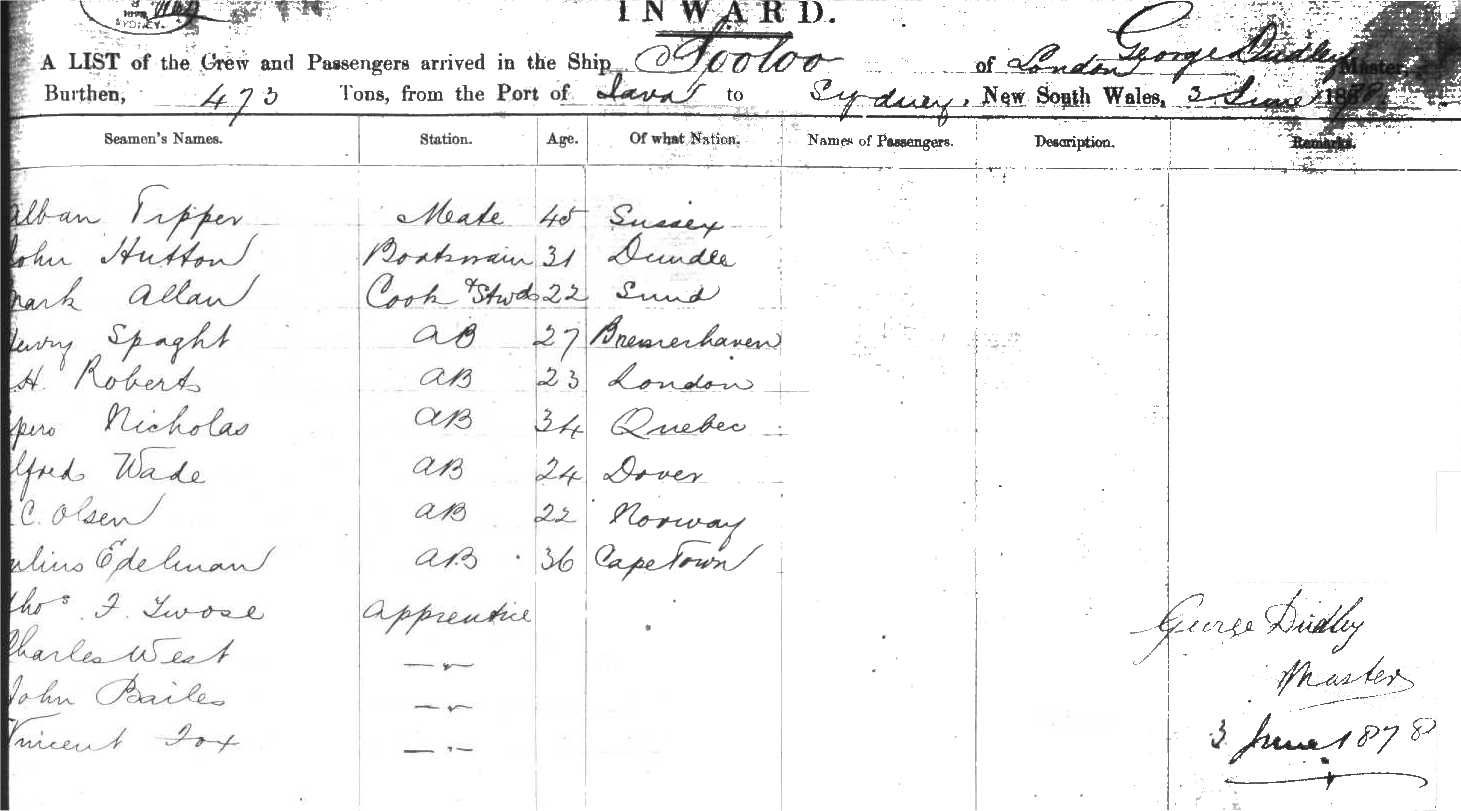 SYDNEY.
INWARD.
A LIST of the Crew and Passengers arrived in the Ship Sooloo of London George Dudley Master,
Burthen, 473 Tons, from the Port of Java to Sydney, New South Wales, 3 June 1878
Seamen's Names. Station. Age. Of what Nation. Names of Passengers. Description. Remarks.
Alban Tipper Meate 45 Sussex
John Hutton Boatswain 31 Dundee
Mark Allan Cook & Stwd 22 Sund
Henry Spaght AB 27 Bremerhaven
H. Roberts AB 23 London
Spero Nicholas AB 34 Quebec
Alfred Wade AB 24 Dover
C. Olsen AB 22 Norway
Julius Edelman AB 36 Cape Town
Thos F. Twose Apprentice
Charles West — " —
John Bailes — " —
Vincent Fox — " —
George Dudley
Master
3 June 1878